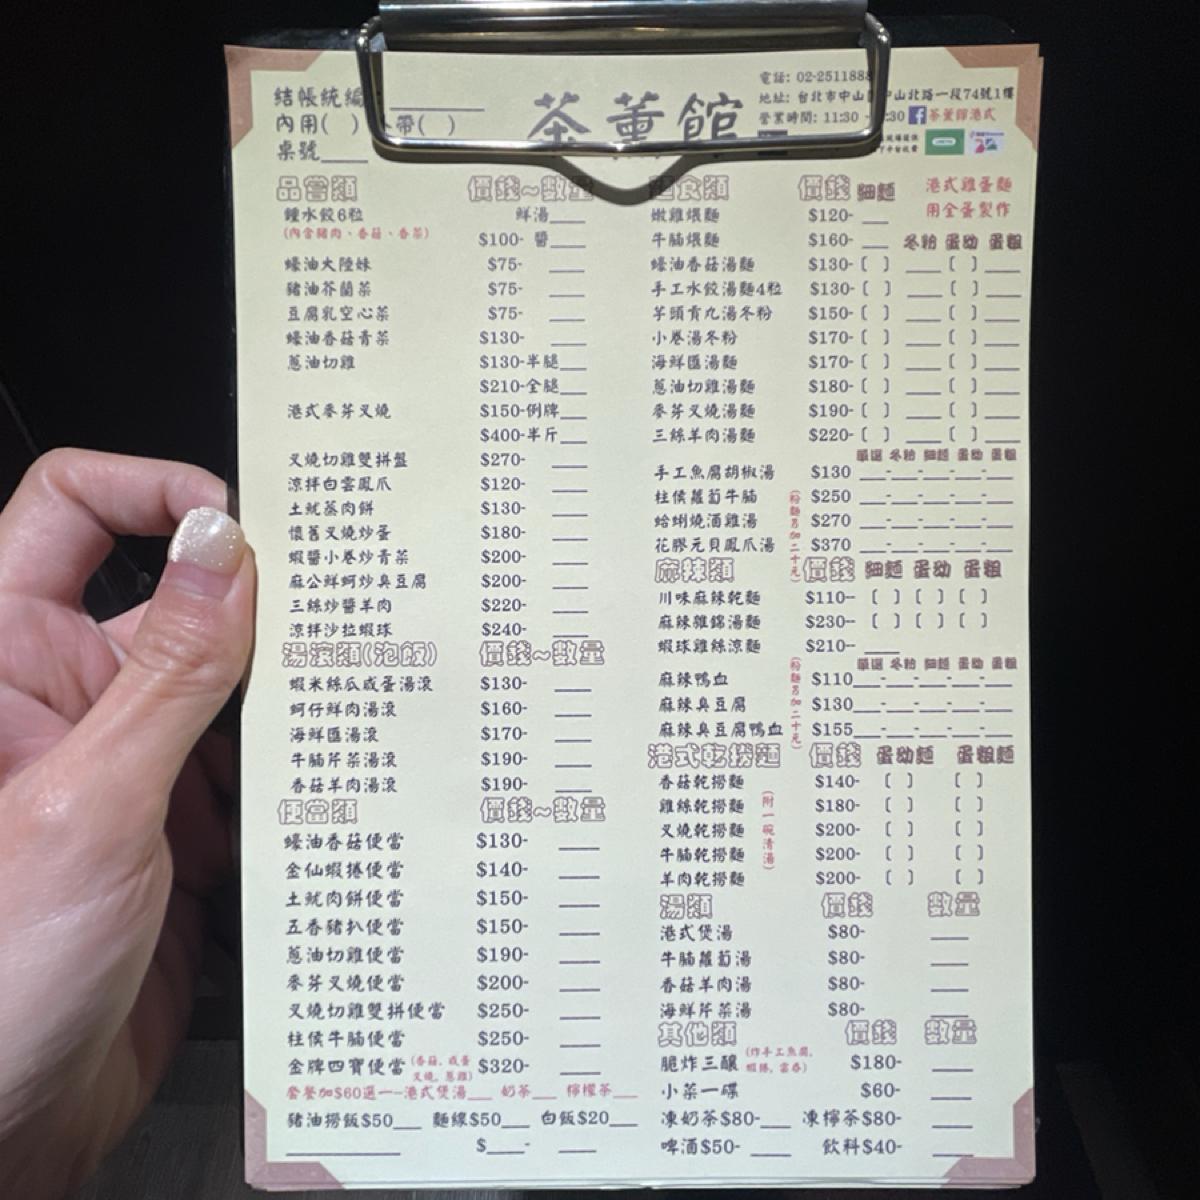 結帳統編
內用( ) 帶( )
桌號
茶薰館
電話: 02-2511888
地址: 台北市中山 中山北路一段74號1樓
營業時間: 11:30 - :30 茶薰館港式
品嘗類 價錢~數量
鍾水餃6粒 鮮湯
(內含豬肉、香菇、香菜) $100- 醬
蠔油大陸妹 $75-
豬油芥蘭菜 $75-
豆腐乳空心菜 $75-
蠔油香菇青菜 $130-
蔥油切雞 $130-半腿
$210-全腿
港式麥芽叉燒 $150-例牌
$400-半斤
叉燒切雞雙拼盤 $270-
涼拌白雲鳳爪 $120-
土魷蒸肉餅 $130-
懷舊叉燒炒蛋 $180-
蝦醬小卷炒青菜 $200-
麻公鮮蚵炒臭豆腐 $200-
三絲炒醬羊肉 $220-
涼拌沙拉蝦球 $240-
湯滾類(泡飯) 價錢~數量
蝦米絲瓜咸蛋湯滾 $130-
蚵仔鮮肉湯滾 $160-
海鮮匯湯滾 $170-
牛腩芹菜湯滾 $190-
香菇羊肉湯滾 $190-
便當類 價錢~數量
蠔油香菇便當 $130-
金仙蝦捲便當 $140-
土魷肉餅便當 $150-
五香豬扒便當 $150-
蔥油切雞便當 $190-
麥芽叉燒便當 $200-
叉燒切雞雙拼便當 $250-
柱侯牛腩便當 $250-
金牌四寶便當 (香菇, 咸蛋 叉燒, 蔥雞) $320-
套餐加$60選一--港式煲湯 奶茶 檸檬茶
豬油撈飯$50 麵線$50 白飯$20
$ -
食類 價錢 細麵 港式雞蛋麵
用全蛋製作
嫩雞煨麵 $120-
牛腩煨麵 $160- 冬粉 蛋幼 蛋粗
蠔油香菇湯麵 $130-( ) ( )
手工水餃湯麵4粒 $130-( ) ( )
芋頭貢丸湯冬粉 $150-( ) ( )
小卷湯冬粉 $170-( ) ( )
海鮮匯湯麵 $170-( ) ( )
蔥油切雞湯麵 $180-( ) ( )
麥芽叉燒湯麵 $190-( ) ( )
三絲羊肉湯麵 $220-( ) ( )
單選 冬粉 細麵 蛋幼 蛋粗
手工魚腐胡椒湯 $130
柱侯蘿蔔牛腩 $250
蛤蜊燒酒雞湯 $270
花膠元貝鳳爪湯 $370
(粉麵另加二十元)
麻辣類 價錢 細麵 蛋幼 蛋粗
川味麻辣乾麵 $110-- ( ) ( ) ( )
麻辣雜錦湯麵 $230-- ( ) ( ) ( )
蝦球雞絲涼麵 $210--
單選 冬粉 細麵 蛋幼 蛋粗
麻辣鴨血 $110
麻辣臭豆腐 $130
麻辣臭豆腐鴨血 $155
(粉麵另加二十元)
港式乾撈麵 價錢 蛋幼麵 蛋粗麵
香菇乾撈麵 $140- ( ) ( )
雞絲乾撈麵 $180- ( ) ( )
叉燒乾撈麵 $200- ( ) ( )
牛腩乾撈麵 $200- ( ) ( )
羊肉乾撈麵 $200- ( ) ( )
(附一碗清湯)
湯類 價錢 數量
港式煲湯 $80-
牛腩蘿蔔湯 $80-
香菇羊肉湯 $80-
海鮮芹菜湯 $80-
其他類 價錢 數量
脆炸三釀 (炸手工魚腐, 蝦捲, 雲吞) $180-
小菜一碟 $60-
凍奶茶$80- 凍檸茶$80-
啤酒$50- 飲料$40-